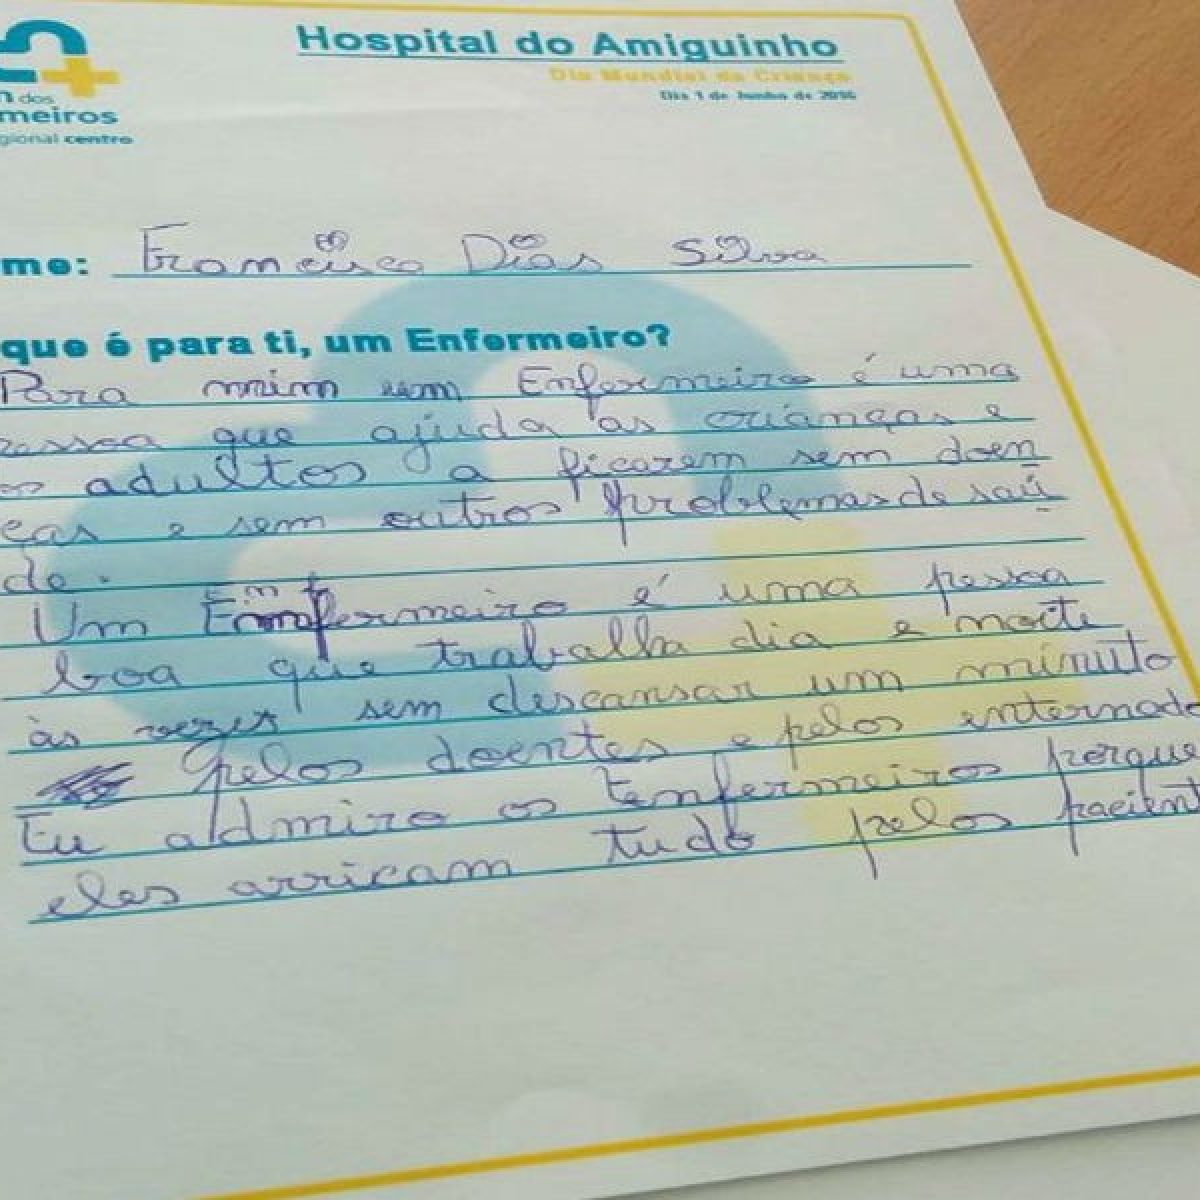 Hospital do Amiguinho
Dia Mundial da Criança
Dia 1 de Junho de 2016
n dos
meiros
gional centro
me: Francisca Dias Silva
que é para ti, um Enfermeiro?
Para mim um Enfermeiro é uma
pessoa que ajuda as crianças e
os adultos a ficarem sem doen
ças e sem outros problemas de saú
de.
Um Enfermeiro é uma pessoa
boa que trabalha dia e noite
às vezes sem descansar um minuto
pelos doentes e pelos enternado
Eu admiro os Enfermeiros porque
eles arricam tudo pelos pacient